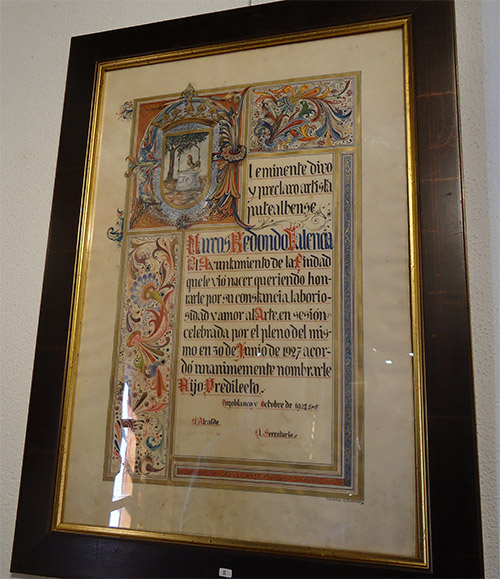 Al eminente divo
y preclaro artista
putealbense
Marcos Redondo Valencia
El Ayuntamiento de la Ciudad
que le vió nacer queriendo hon
rarle por su constancia, laborio
sidad y amor al Arte, en sesión
celebrada por el pleno del mis
mo en 30 de Junio de 1927 acor
dó unanimemente nombrarle
Hijo Predilecto.
Pozoblanco y Octubre de 1928
El Alcalde.
El Secretario.
5